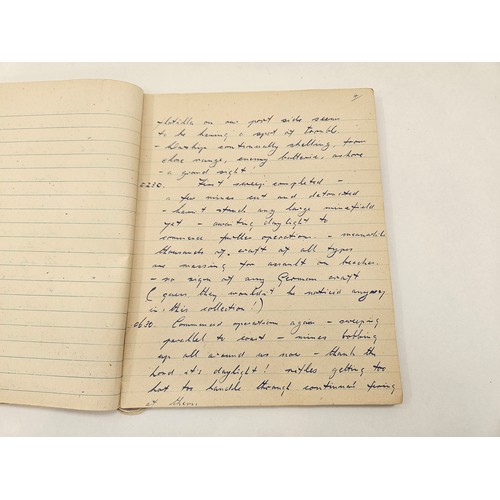 flotilla on our port side seem
to be having a spot of trouble.
- Warships continually shelling, from
close range, enemy batteries, ashore
- a grand sight!
0210. First sweep completed -
a few mines cut and detonated
- haven't struck any large minefield
yet - awaiting daylight to
commence further operations. - meanwhile
thousands of craft of all types
are massing for assault on beaches.
- no sign of any German craft
(guess they wouldn't be noticed anyway
in this collection!)
0630. Commenced operations again - sweeping
parallel to coast - mines bobbing
up all around us now - thank the
Lord it's daylight! rifles getting too
hot to handle through continual firing
at them.